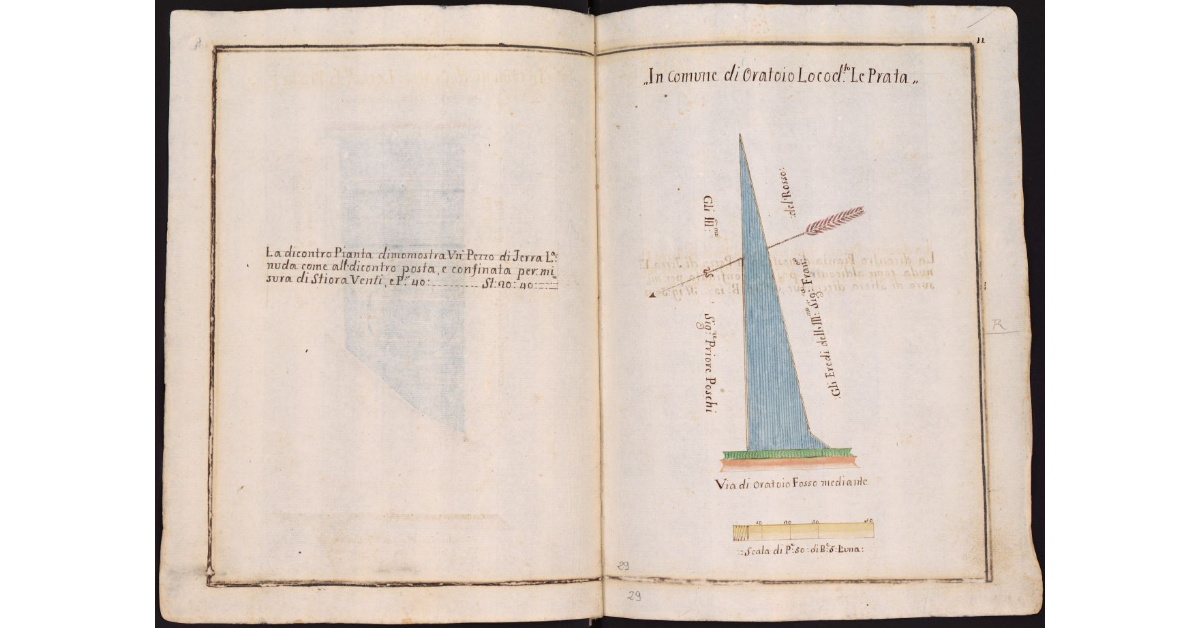 La dicontro Pianta dimomostra Un: Pezzo di Terra La:
nuda come all: dicontro posta, e confinata per: mi
sura di Stiora Venti, e P.e 40: St: 20: 40:
11
„In Comune di Oratoio Locod.to Le Prata„
Gli Ill:mi
Sig.ri Priore Poschi
del: Rosso:
Gli Eredi dell: Ill:mo Sig:re Fran:co
Via di Oratoio Fosso mediante
10 20 30 50
Scala di P.e 50: di B.a 5: L'una:
29
29
R